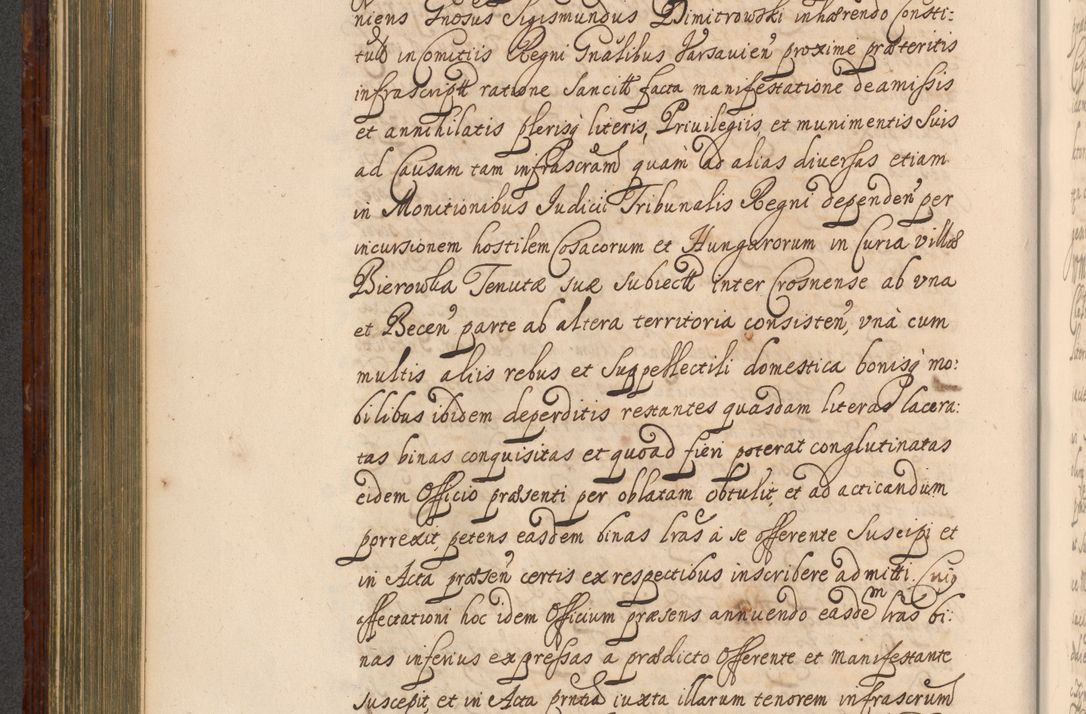 niens Gnosus Sigismundus Dimitrowski inhærendo Consti:
tut in Comitiis Regni Gnalibus Varsavien proxime præteritis
infrascript ratione Sancitt facta manifestatione de amissis
et annihilatis plerisq literis, Privilegiis, et munimentis Suis
ad Causam tam infrascram quam ad alias diversas etiam
in Monitionibus Judicii Tribunalis Regni dependen per
incursionem hostilem Cosacorum et Hungarorum in Curia villæ
Bierowka Tenutæ suæ subiectt inter Crosnense ab vna
et Becen parte ab altera territoria consisten, vnà cum
multis aliis rebus et Suppellectili domestica bonisq mo:
bilibus ibidem deperditis restantes quasdam literas lacera:
tas binas conquisitas et quoad fieri poterat conglutinatas
eidem Officio præsenti per oblatam obtulit, et ad acticandum
porrexit, petens easdem binas lras à se offerente Suscipi et
in Acta præsen certis ex respectibus inscribere admitti. Cuiq
affectationi hoc idem Officium præsens annuendo easdem lras bi:
nas inferius expressas a prædicto Offerente et manifestante
suscepit, et in Acta prntia iuxta illarum tenorem infrascrum